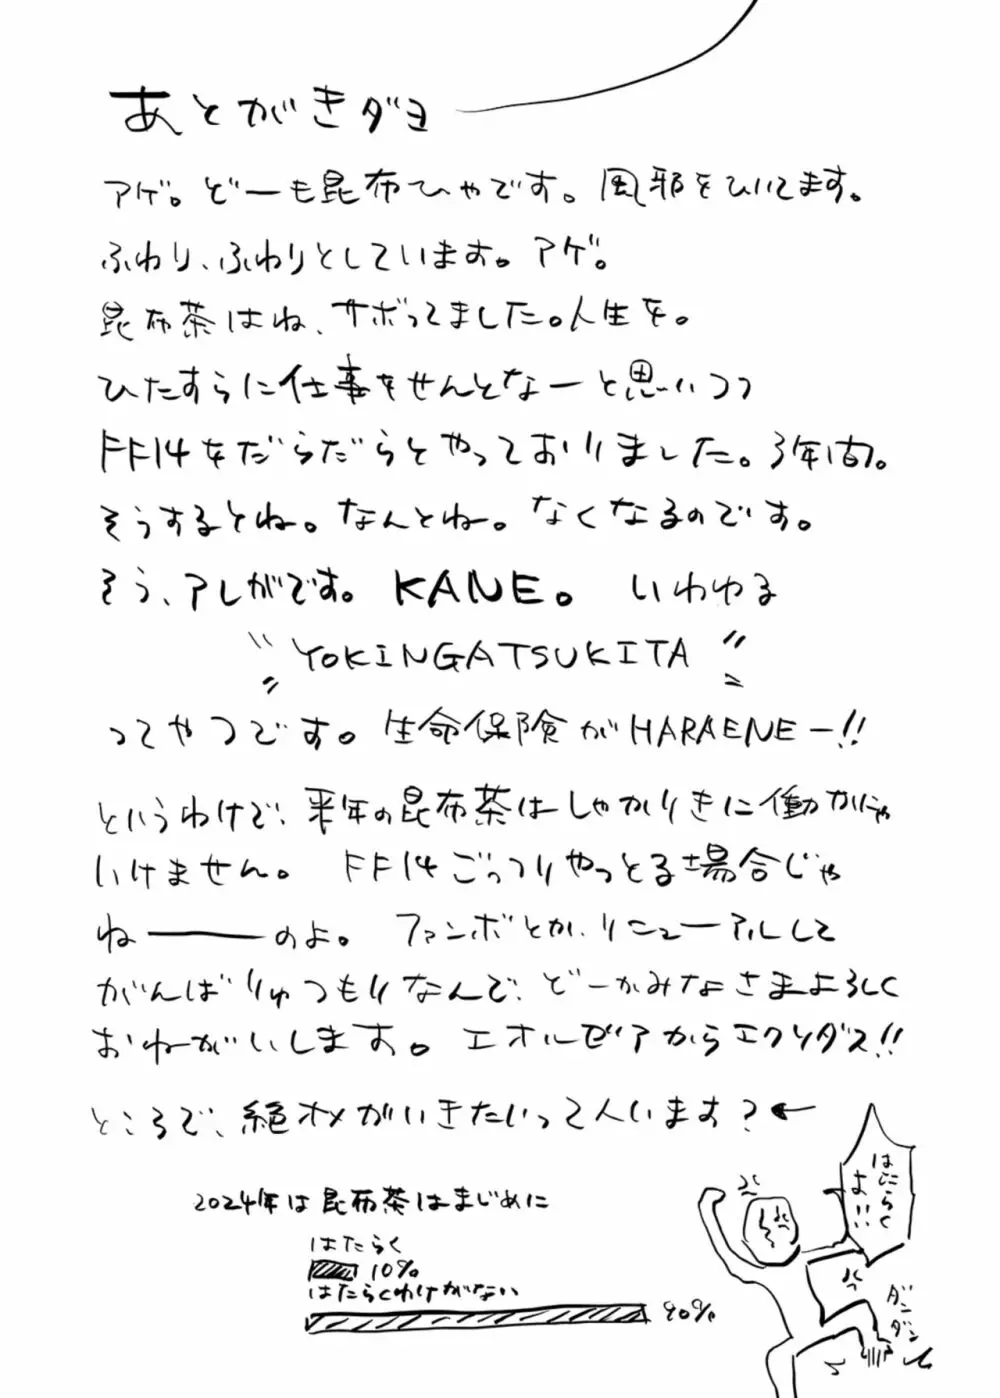 あとがきダヨ
アゲ。どーも昆布ひゃです。風邪をひいてます。
ふわり、ふわりとしています。アゲ。
昆布茶はね、サボってました。人生を。
ひたすらに仕事をせんとなーと思いつつ
FF14をだらだらとやっておりました。3年間。
そうするとね。なんとね。なくなるのです。
そう、アレがです。KANE。いわゆる
"YOKINGATSUKITA"
ってやつです。生命保険がHARAENEー!!
というわけで、来年の昆布茶はしゃかりきに働かにゃ
いけません。FF14ごっつりやっとる場合じゃ
ねーーーのよ。ファンボとか、リニューアルして
がんばりゅつもりなんで、どーかみなさまよろしく
おねがいします。エオルゼアからエクソダス!!
ところで、絶オメガいきたいって人います?←
はたらくよ!!
ダンダン
2024年は昆布茶はまじめに
はたらく
10%
はたらくわけがない
90%